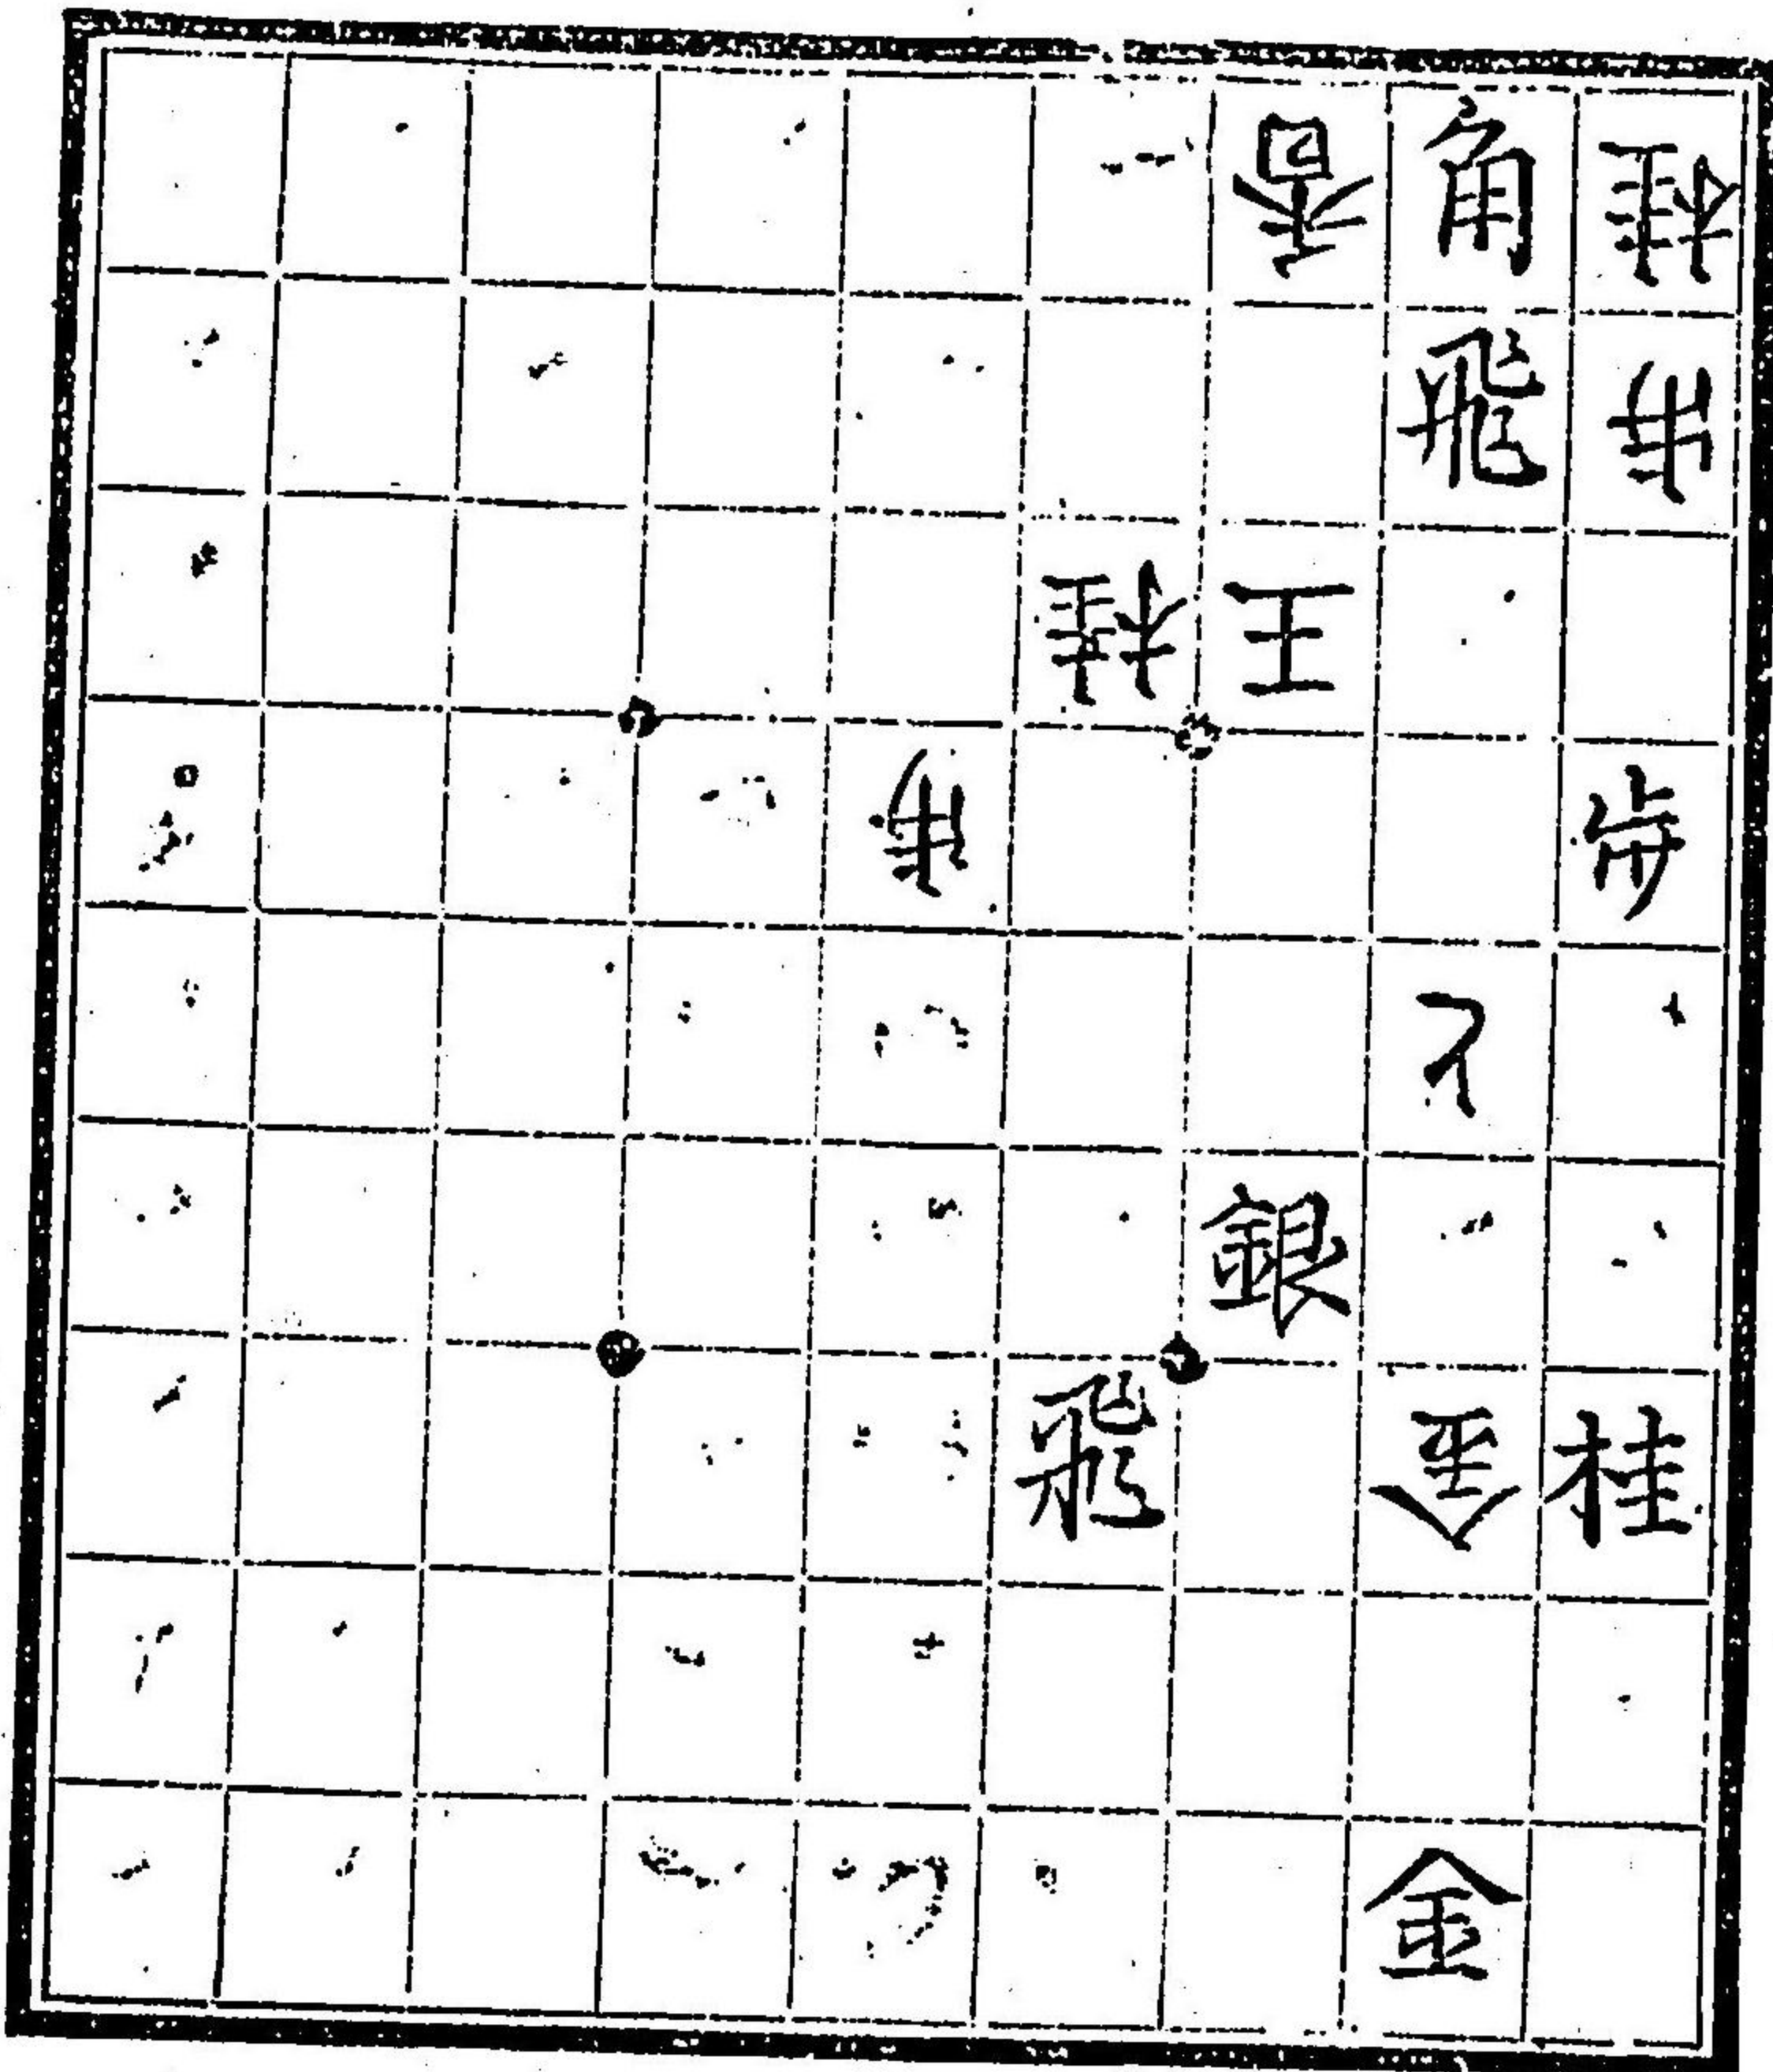 香 角 桂
飛 歩
桂 王
歩 歩
銀
飛 金 桂
金